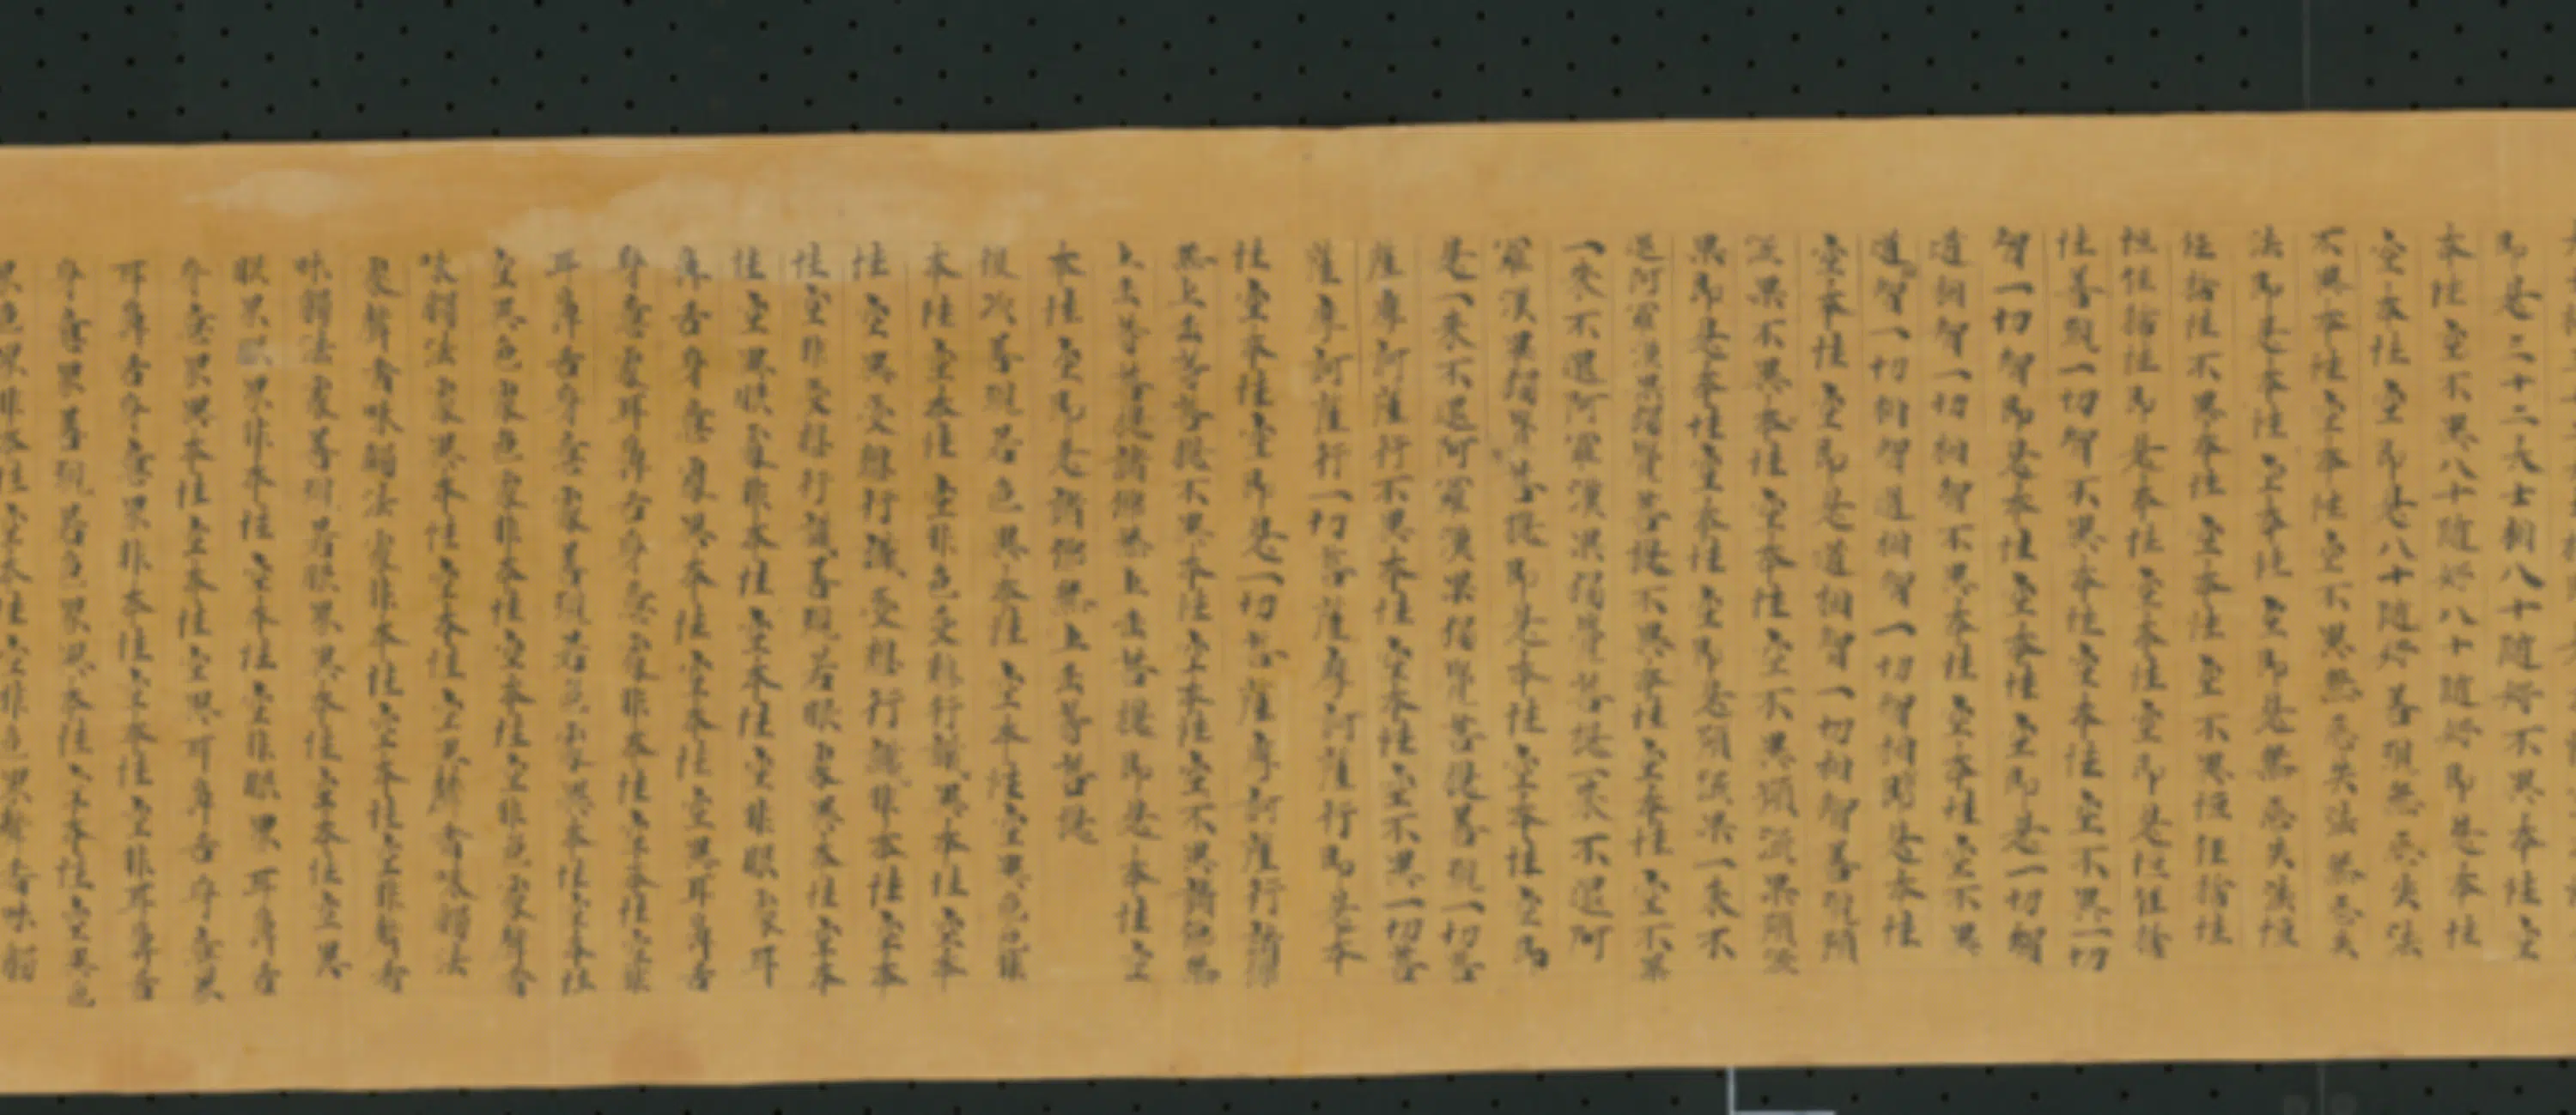 即是三十二大士相八十隨好不異本性空
本性空不異八十隨好八十隨好即是本性
空本性空即是八十隨好善現無忘失法
不異本性空本性空不異無忘失法無忘失
法即是本性空本性空即是無忘失法恒
住捨性不異本性空本性空不異恒住捨性
恒住捨性即是本性空本性空即是恒住捨
性善現一切智不異本性空本性空不異一切
智一切智即是本性空本性空即是一切智
道相智一切相智不異本性空本性空不異
道智一切相智道相智一切智相即是本性
空本性空即是道相智一切相智善現預
流果不異本性空本性空不異預流果預流
果即是本性空本性空即是預流果一來不
還阿羅漢果獨覺菩提不異本性空本性空不異
一來不還阿羅漢果獨覺菩提一來不還阿
羅漢果獨覺菩提即是本性空本性空即
是一來不還阿羅漢果獨覺菩提善現一切菩
薩摩訶薩行不異本性空本性空不異一切菩
薩摩訶薩行一切菩薩摩訶薩行即是本
性空本性空即是一切菩薩摩訶薩行諸佛
無上正等菩提不異本性空本性空不異諸佛無
上正等菩提諸佛無上正等菩提即是本性空
本性空即是諸佛無上正等菩提
復次善現若色異本性空本性空異色色非
本性空本性空非色受想行識異本性空本
性空異受想行識受想行識非本性空本
性空非受想行識善現若眼處異本性空本
性空異眼處非本性空本性空非眼處耳
鼻舌身意處異本性空本性空異耳鼻舌
身意處耳鼻舌身意處非本性空本性空非
耳鼻舌身意處善現若色處異本性空本性
空異色處色處非本性空本性空非色處聲香
味觸法處異本性空本性空異聲香味觸法
處聲香味觸法處非本性空本性空非聲香
味觸法處善現若眼界異本性空本性空異
眼界眼界非本性空本性空非眼界耳鼻舌
身意界異本性空本性空異耳鼻舌身意界
耳鼻舌身意界非本性空本性空非耳鼻舌
身意界善現若色界異本性空本性空異色
界色界非本性空本性空非色界聲香味觸